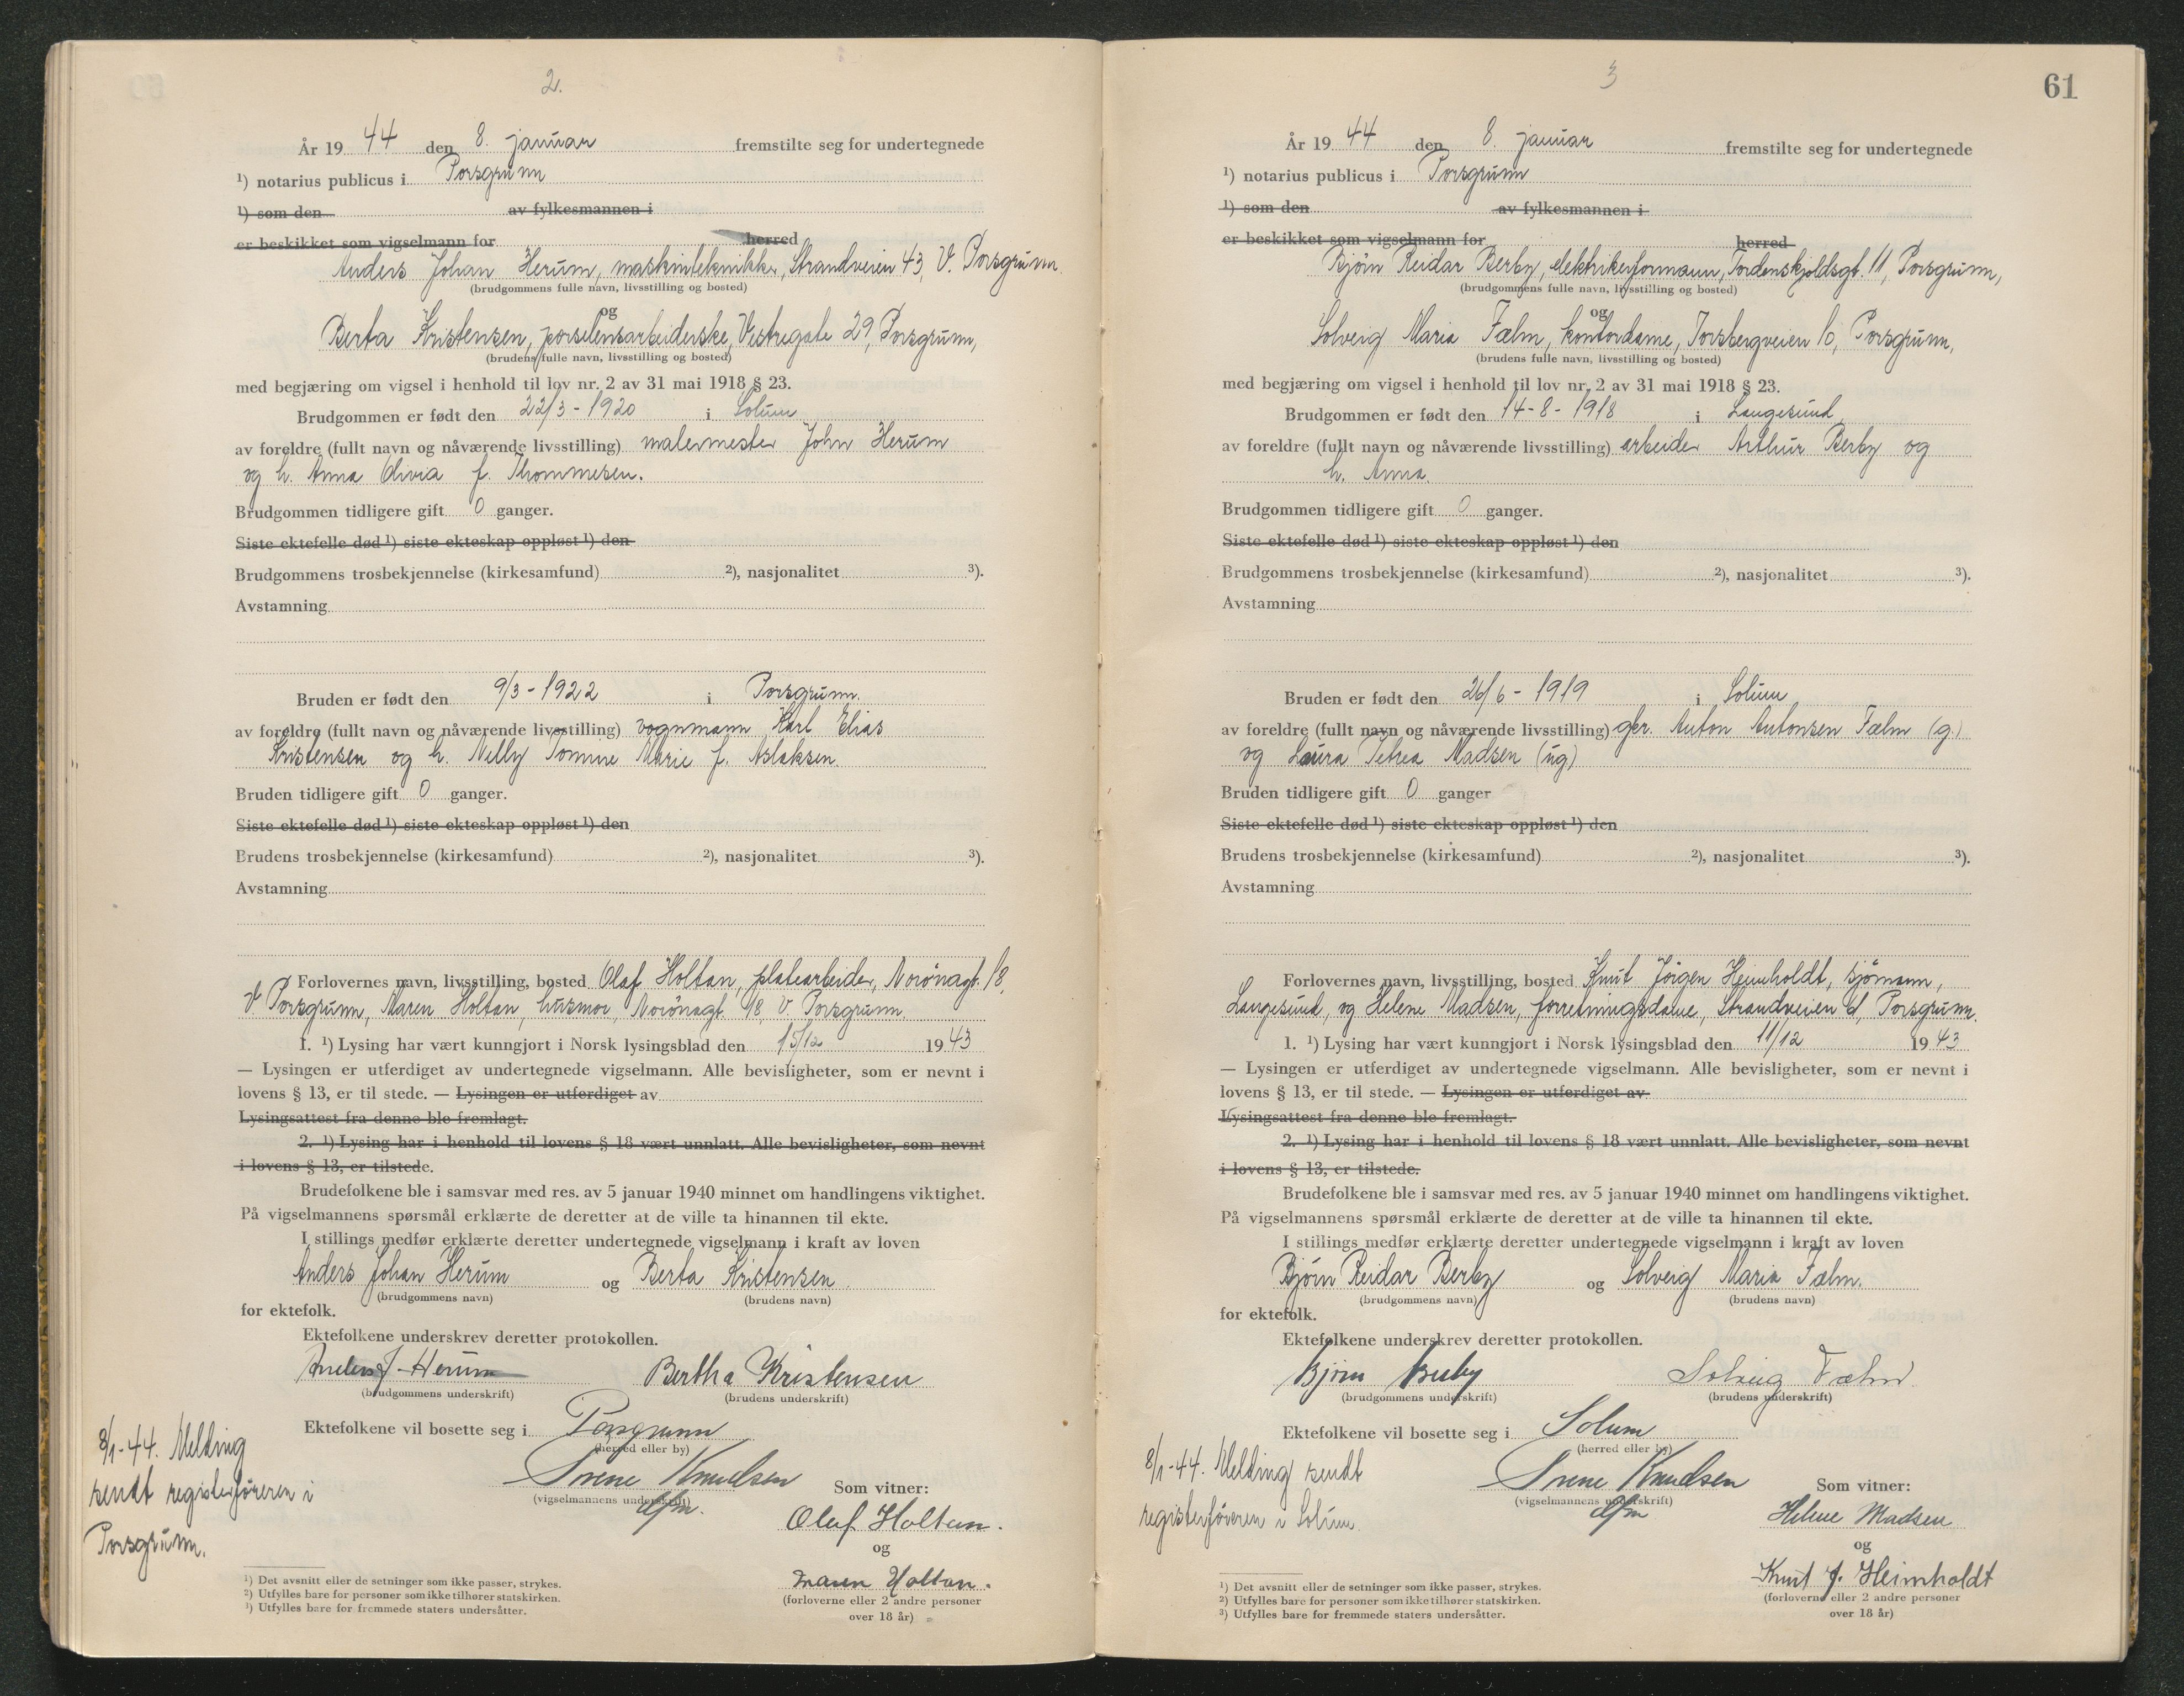 2.
År 19 44 den 8. januar fremstilte seg for undertegnede
¹) notarius publicus i Porsgrunn
¹) som den av fylkesmannen i
er beskikket som vigselmann for herred
Anders Johan Herum, maskintekniker, Strandveien 43, V. Porsgrunn.
(brudgommens fulle navn, livsstilling og bosted)
og
Berta Kristensen, porselensarbeiderske, Vestregate 29, Porsgrunn,
(brudens fulle navn, livsstilling og bosted)
med begjæring om vigsel i henhold til lov nr. 2 av 31 mai 1918 § 23.
Brudgommen er født den 22/3 - 1920 i Solum
av foreldre (fullt navn og nåværende livsstilling) malermester John Herum
og h. Anna Olivia f. Thommesen.
Brudgommen tidligere gift 0 ganger.
Siste ektefelle død ¹) siste ekteskap oppløst ¹) den
Brudgommens trosbekjennelse (kirkesamfund) ²), nasjonalitet ³).
Avstamning
Bruden er født den 9/3 - 1922 i Porsgrunn.
av foreldre (fullt navn og nåværende livsstilling) vognmann Karl Elias
Kristensen og h. Nelly Tomine Marie f. Aslaksen.
Bruden tidligere gift 0 ganger.
Siste ektefelle død ¹) siste ekteskap oppløst ¹) den
Brudens trosbekjennelse (kirkesamfund) ²), nasjonalitet ³).
Avstamning
Forlovernes navn, livsstilling, bosted Olaf Holtan, platearbeider, Norönagt. 18,
V. Porsgrunn, Maren Holtan, husmor, Norönagt. 18, V. Porsgrunn.
1. ¹) Lysing har vært kunngjort i Norsk lysingsblad den 15/12 19 43
— Lysingen er utferdiget av undertegnede vigselmann. Alle bevisligheter, som er nevnt i
lovens § 13, er til stede. — Lysingen er utferdiget av
Lysingsattest fra denne ble fremlagt.
2. ¹) Lysing har i henhold til lovens § 18 vært unnlatt. Alle bevisligheter, som nevnt
i lovens § 13, er tilstede.
Brudefolkene ble i samsvar med res. av 5 januar 1940 minnet om handlingens viktighet.
På vigselmannens spørsmål erklærte de deretter at de ville ta hinannen til ekte.
I stillings medfør erklærte deretter undertegnede vigselmann i kraft av loven
Anders Johan Herum og Berta Kristensen
(brudgommens navn) (brudens navn)
for ektefolk.
Ektefolkene underskrev deretter protokollen.
Anders J. Herum Bertha Kristensen
(brudgommens underskrift) (brudens underskrift)
Ektefolkene vil bosette seg i Porsgrunn
(herred eller by)
Irene Knudsen
(vigselmannens underskrift)
dfm.
Som vitner:
Olaf Holtan.
og
Maren Holtan.
(forloverne eller 2 andre personer
over 18 år)
8/1-44. Melding
sendt registerföreren i
Porsgrunn.
¹) Det avsnitt eller de setninger som ikke passer, strykes.
²) Utfylles bare for personer som ikke tilhører statskirken.
³) Utfylles bare for fremmede staters undersåtter.
3
61
År 19 44 den 8. januar fremstilte seg for undertegnede
¹) notarius publicus i Porsgrunn
¹) som den av fylkesmannen i
er beskikket som vigselmann for herred
Björn Reidar Berby, elektrikerformann, Tordenskjoldsgt. 11, Porsgrunn,
(brudgommens fulle navn, livsstilling og bosted)
og
Solveig Maria Fælm, kontordame, Torsbergveien 16, Porsgrunn,
(brudens fulle navn, livsstilling og bosted)
med begjæring om vigsel i henhold til lov nr. 2 av 31 mai 1918 § 23.
Brudgommen er født den 14-8-1918 i Langesund
av foreldre (fullt navn og nåværende livsstilling) arbeider Arthur Berby og
h. Anna.
Brudgommen tidligere gift 0 ganger.
Siste ektefelle død ¹) siste ekteskap oppløst ¹) den
Brudgommens trosbekjennelse (kirkesamfund) ²), nasjonalitet ³).
Avstamning
Bruden er født den 26/6 - 1919 i Solum
av foreldre (fullt navn og nåværende livsstilling) gbr. Anton Antonsen Fælm (g.)
og Laura Petrea Madsen (ug)
Bruden tidligere gift 0 ganger
Siste ektefelle død ¹) siste ekteskap oppløst ¹) den
Brudens trosbekjennelse (kirkesamfund) ²), nasjonalitet ³).
Avstamning
Forlovernes navn, livsstilling, bosted Knut Jörgen Heimholdt, sjömann,
Langesund, og Helene Madsen, forretningsdame, Strandveien, Porsgrunn.
1. ¹) Lysing har vært kunngjort i Norsk lysingsblad den 11/12 19 43
— Lysingen er utferdiget av undertegnede vigselmann. Alle bevisligheter, som er nevnt i
lovens § 13, er til stede. — Lysingen er utferdiget av
Lysingsattest fra denne ble fremlagt.
2. ¹) Lysing har i henhold til lovens § 18 vært unnlatt. Alle bevisligheter, som nevnt
i lovens § 13, er tilstede.
Brudefolkene ble i samsvar med res. av 5 januar 1940 minnet om handlingens viktighet.
På vigselmannens spørsmål erklærte de deretter at de ville ta hinannen til ekte.
I stillings medfør erklærte deretter undertegnede vigselmann i kraft av loven
Björn Reidar Berby og Solveig Maria Fælm.
(brudgommens navn) (brudens navn)
for ektefolk.
Ektefolkene underskrev deretter protokollen.
Bjørn Berby Solveig Fælm
(brudgommens underskrift) (brudens underskrift)
Ektefolkene vil bosette seg i Solum
(herred eller by)
Irene Knudsen
(vigselmannens underskrift)
dfm
Som vitner:
Helene Madsen
og
Knut J. Heimholdt
(forloverne eller 2 andre personer
over 18 år)
8/1-44. Melding sendt
registerföreren i Solum.
¹) Det avsnitt eller de setninger som ikke passer, strykes.
²) Utfylles bare for personer som ikke tilhører statskirken.
³) Utfylles bare for fremmede staters undersåtter.